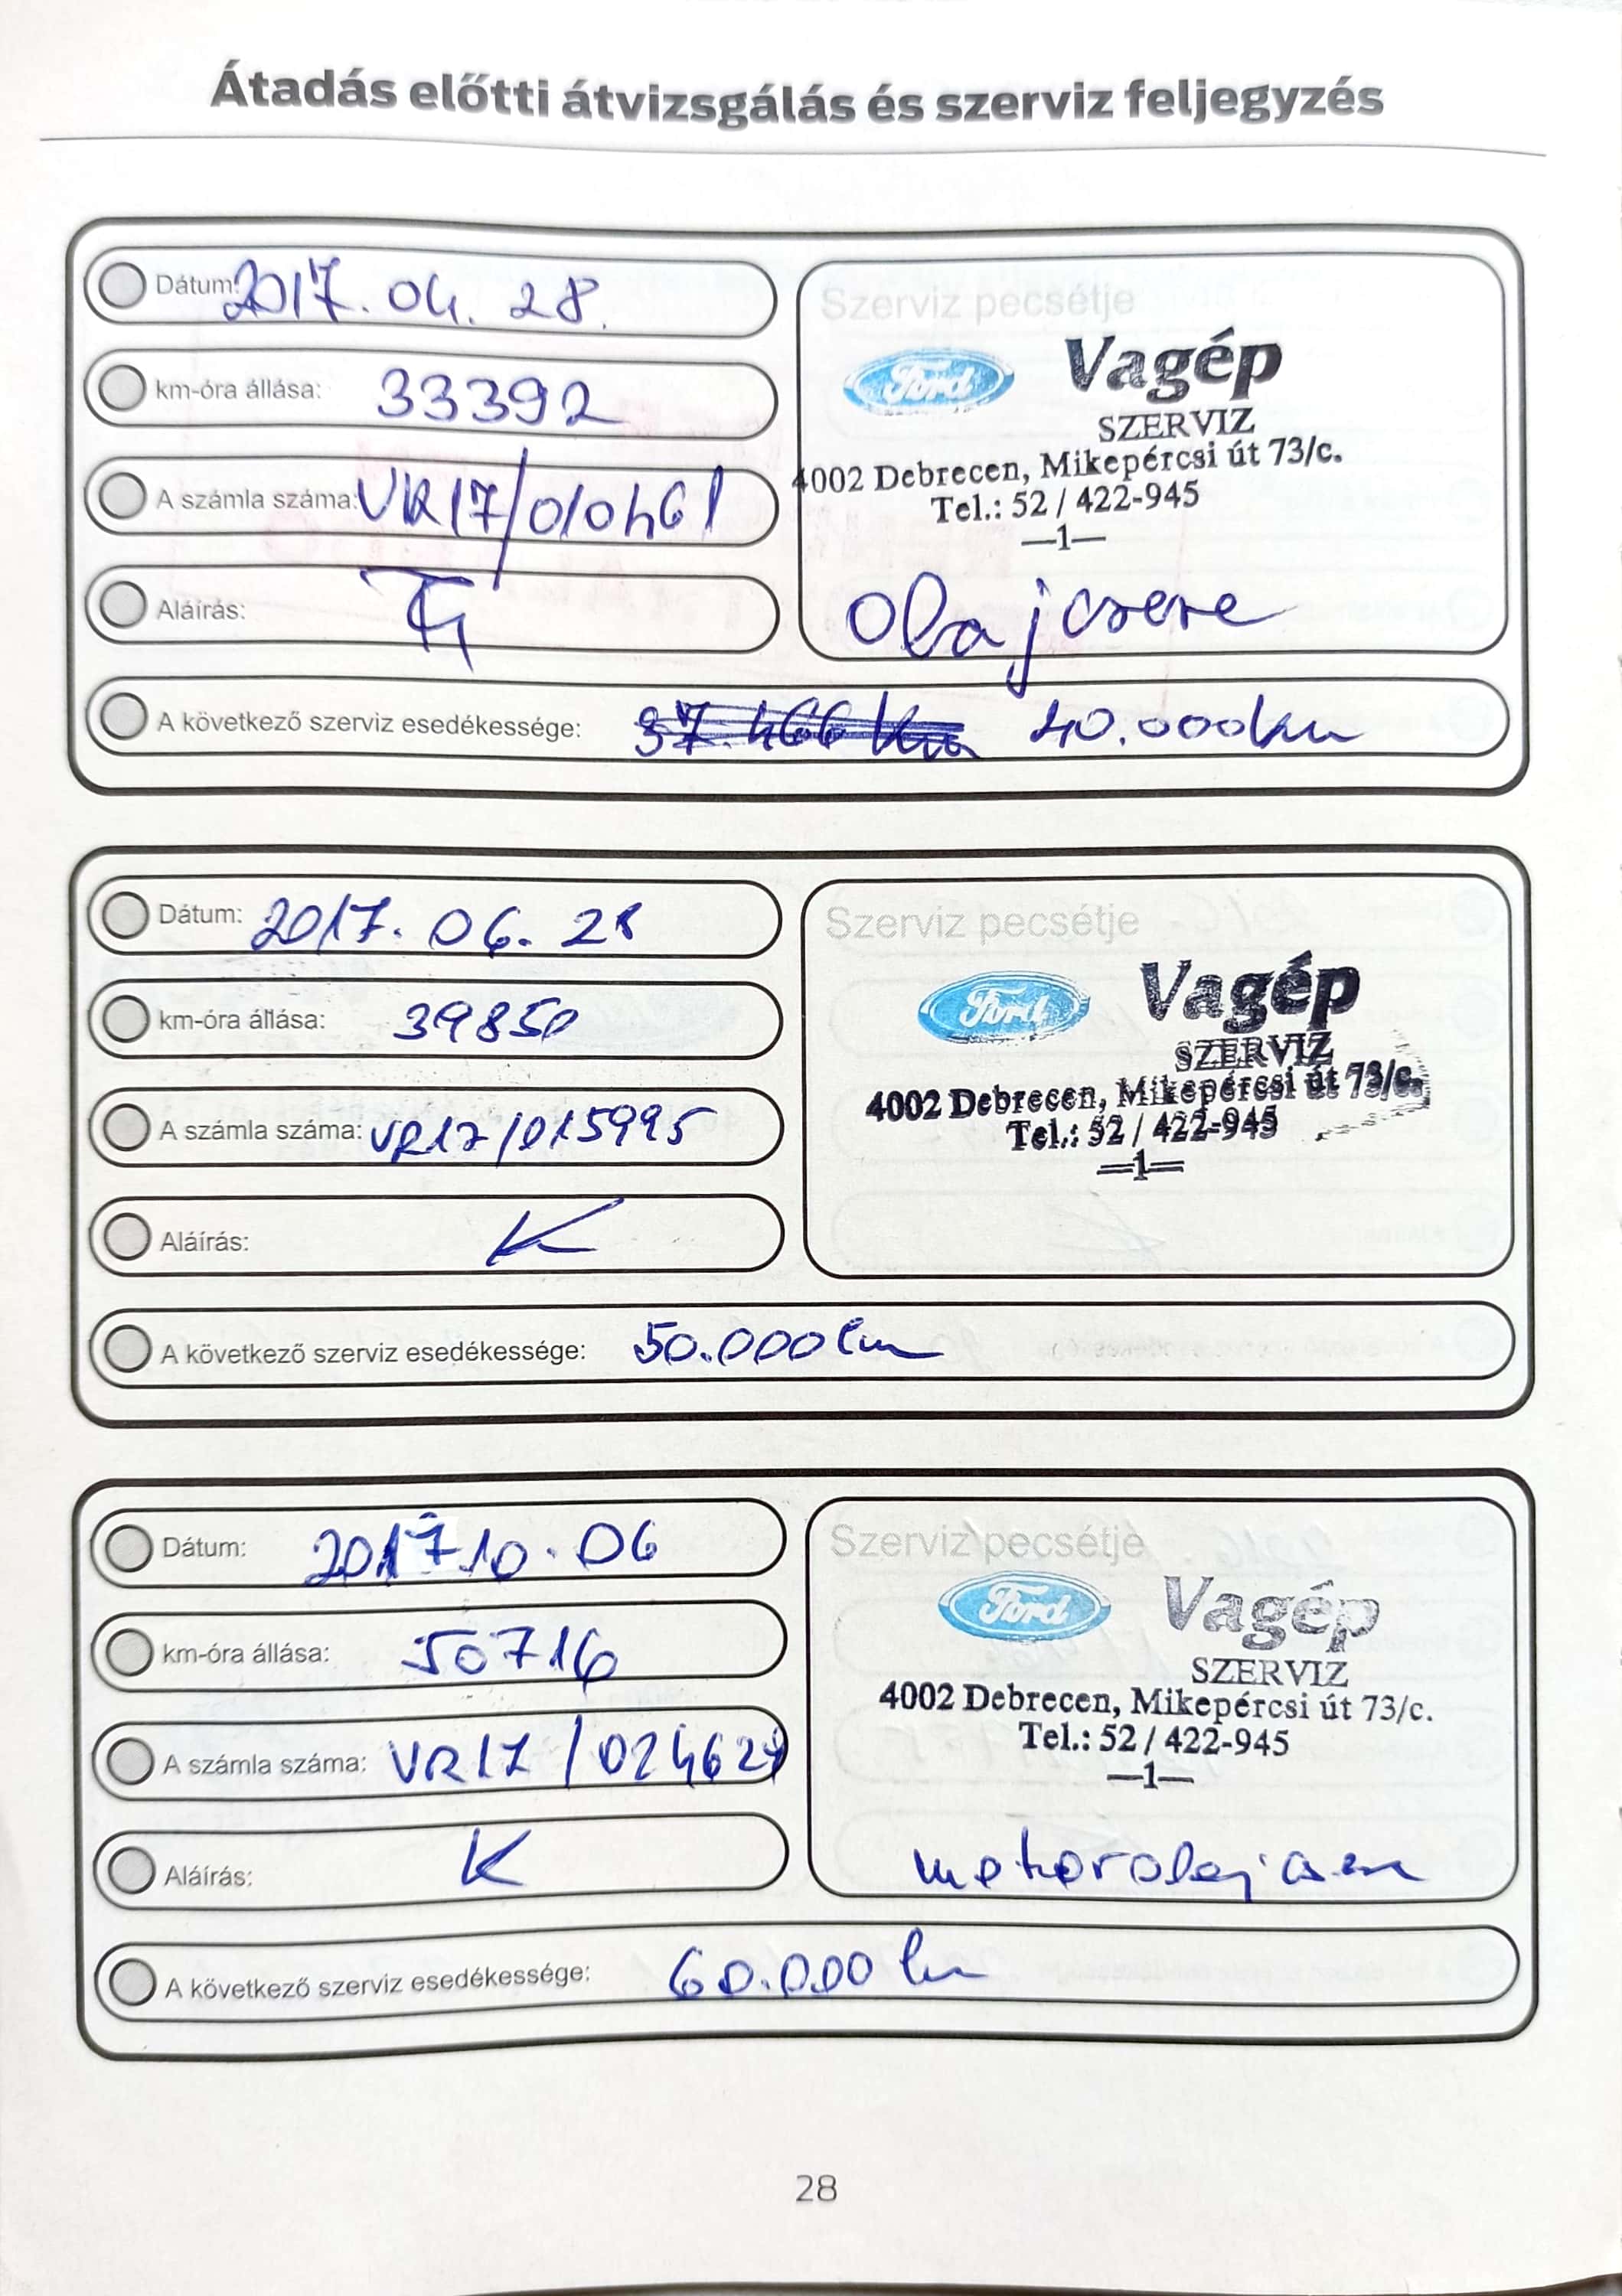 Átadás előtti átvizsgálás és szerviz feljegyzés
Dátum: 2017. 04. 28.
km-óra állása: 33392
A számla száma: VR17/010461
Aláírás:
Szerviz pecsétje
Ford Vagép
SZERVIZ
4002 Debrecen, Mikepércsi út 73/c.
Tel.: 52 / 422-945
—1—
Olajcsere
A következő szerviz esedékessége: 37.466 km 40.000km
Dátum: 2017. 06. 28
km-óra állása: 39850
A számla száma: VR17/015995
Aláírás: K
Szerviz pecsétje
Ford Vagép
SZERVIZ
4002 Debrecen, Mikepércsi út 73/c.
Tel.: 52 / 422-945
—1—
A következő szerviz esedékessége: 50.000 km
Dátum: 2017 10. 06
km-óra állása: 50716
A számla száma:
Aláírás: K
Szerviz pecsétje
Ford Vagép
SZERVIZ
4002 Debrecen, Mikepércsi út 73/c.
Tel.: 52 / 422-945
—1—
motorolajcsere
A következő szerviz esedékessége: 60.000 km
28